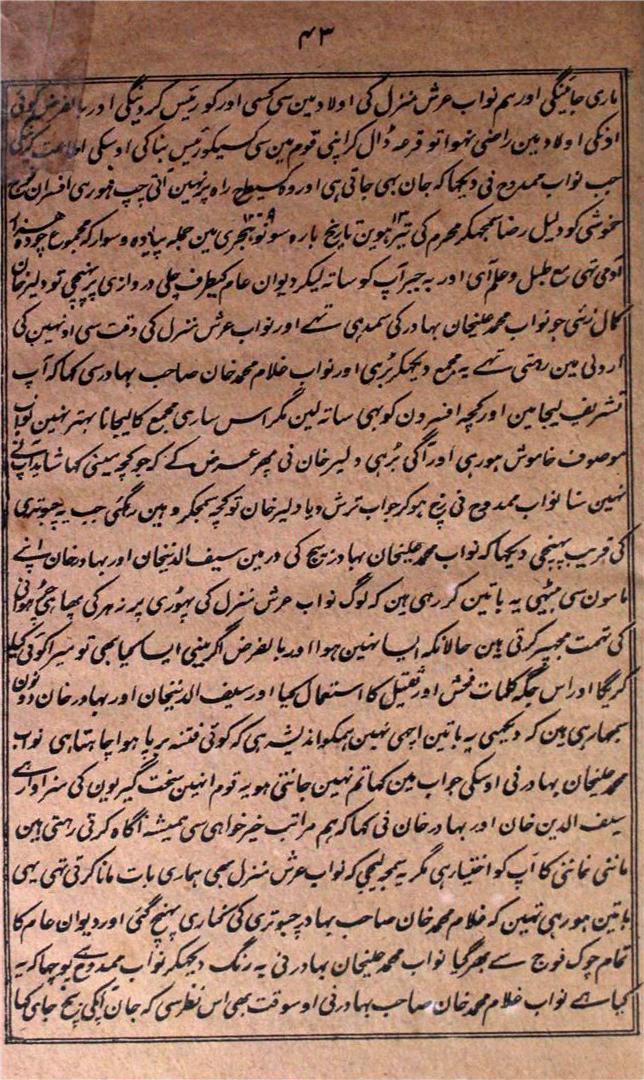 ۴۳
ماری جائینگی اور ہم نواب عرش منزل کی اولاد مین سی کسی اور کو رئیس کر دینگی اور بالفرض کوئی
اونکی اولاد مین راضی نہوا تو قرعہ ڈال کر اپنی قوم مین سی کسیکو رئیس بنا کی اوسکی اطاعت کرینگی
جب نواب ممدوح نی دیکھا کہ جان بھی جاتی ہی اور وہ کسیطرح راہ پر نہین آتی چپ ہو رہی افسران فوج
خموشی کو دلیل رضا سمجھکر محرم کی تیرہوین ۱۳ تاریخ بارہ سو نو ۱۲۰۹ ہجری مین جملہ پیادہ و سوار کہ مجموع چودہ ہزار
آدمی تھی مع طبل و علم آی اور بہ جبر آپ کو ساتہ لیکر دیوان عام کیطرف چلی دروازی پر پہنچی تو دلیر خان
کمال زئی جو نواب محمد علیخان بہادر کی سمدہی تہے اور نواب عرش منزل کی وقت سی اونہین کی
اردلی مین رہتی تہے یہ مجمع دیکھکر بڑہی اور نواب غلام محمد خان صاحب بہادر سی کہا کہ آپ
تشریف لیجامین اور کچھہ افسرون کو بھی ساتہ لین مگر اس ساری مجمع کا لیجانا بہتر نہین نواب
موصوف خاموش ہو رہی اور آگی بڑہی دلیر خان نی پھر عرض کے کہ جو کچھ مینی کہا شاید آپنی
نہین سنا نواب ممدوح نی رنج ہو کر جواب ترش دیا دلیر خان تو کچھ سمجھکر وہین رہگئی جب یہ چبوتری
کی قریب پہنچی دیکھا کہ نواب محمد علیخان بہادر بیچ کی در مین سیف الدینخان اور بہادر خان اپنے
مامون سی بیٹھی یہ باتین کر رہی ہین کہ لوگ نواب عرش منزل کی پھوڑی پر زہر کی پھاہی چڑہوانی
کی تہمت مجھپر کرتی ہین حالانکہ ایسا نہین ہوا اور بالفرض اگر مینی ایسا کیا بھی تو میرا کوئی کیا
کریگا اور اس جگہ کلمات فحش اور ثقیل کا استعمال کیا اور سیف الدینخان اور بہادر خان دونون
سمجھا رہی ہین کہ دیکھیی یہ باتین اچھی نہین ہمکو اندیشہ ہی کہ کوئی فتنہ برپا ہوا چاہتا ہی نواب
محمد علیخان بہادر نی اوسکی جواب مین کہا تم نہین جانتی ہو یہ قوم انہین سخت گیریون کی سزاوار ہے
سیف الدین خان اور بہادر خان نی کہا کہ ہم مراتب خیرخواہی سی ہمیشہ آگاہ کرتی رہتی ہین
ماننی نماننی کا آپ کو اختیار ہی مگر یہ سمجھ لیجی کہ نواب عرش منزل بھی ہماری بات مانا کرتی تھی یہی
باتین ہو رہی تہین کہ غلام محمد خان صاحب بہادر چبوتری کی کناری پہنچ گئی اور دیوان عام کا
تمام چوک فوج سے بھر گیا نواب محمد علیخان بہادر نی یہ رنگ دیکھکر نواب ممدوح سے پوچھا کہ یہ
کیا ہے نواب غلام محمد خان صاحب بہادر نی اوسوقت بھی اس نظر سی کہ جان اونکی بچ جای کہا